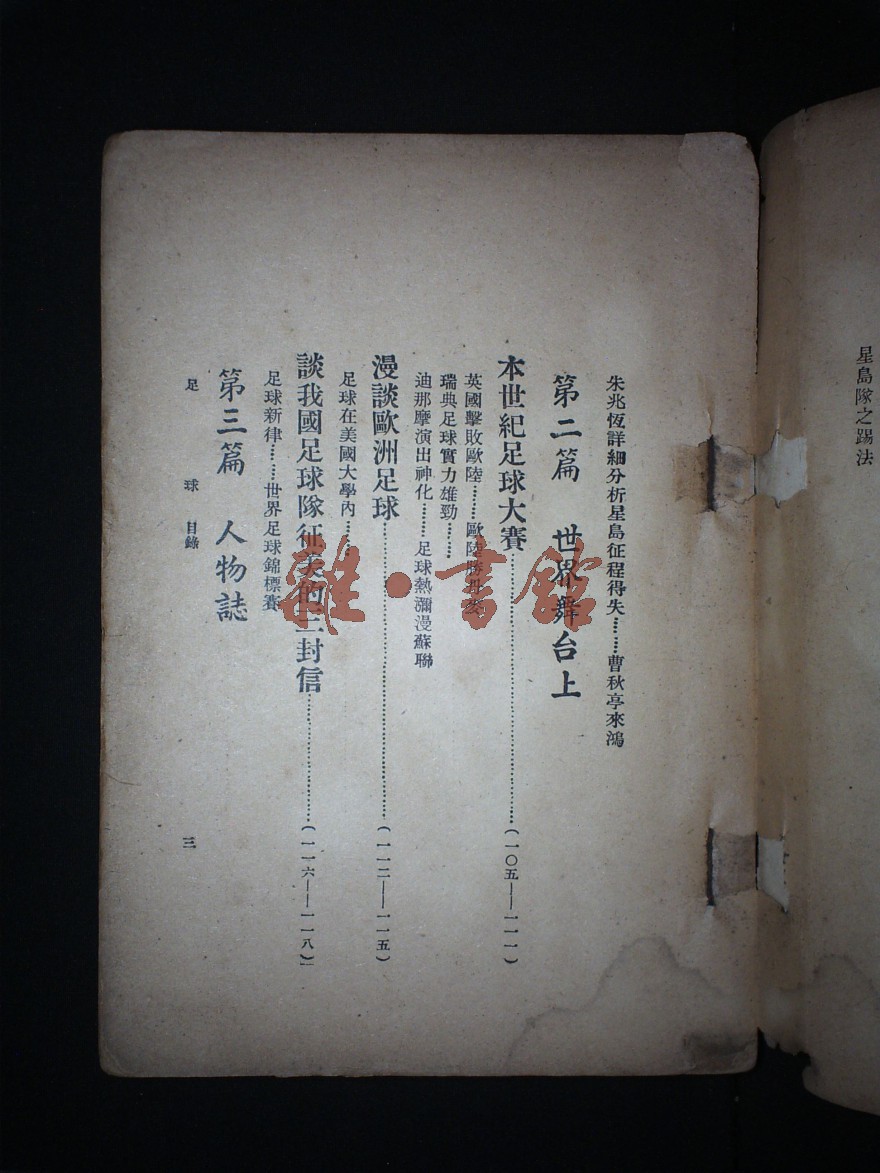 星島隊之踢法
朱兆恆詳細分析星島征程得失………曹秋亭來鴻
第二篇 世界舞台上
本世紀足球大賽…………(一〇五——一一一)
英國擊敗歐陸………歐陸勝丹麥
瑞典足球實力雄勁………
迪那摩演出神化………足球熱瀰漫蘇聯
漫談歐洲足球…………(一一二——一一五)
足球在美國大學內………
談我國足球隊征美的三封信…………(一一六——一一八)
足球新律………世界足球錦標賽
第三篇 人物誌
足球 目錄 三
雜·書館